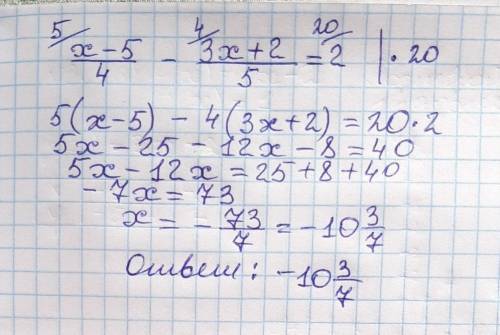 ⁵⁄ (x-5)/4 - ⁴⁄ (3x+2)/5 = ²⁰⁄ 2 | · 20
5(x-5) - 4(3x+2) = 20·2
5x - 25 - 12x - 8 = 40
5x - 12x = 25 + 8 + 40
- 7x = 73
x = - 73/7 = - 10 3/7
Ответ: - 10 3/7